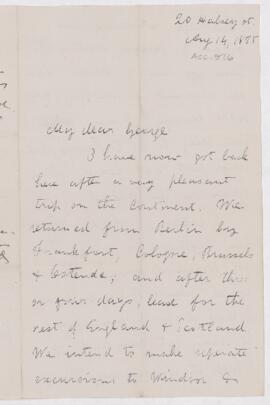 20 Halsey st.
Aug 14, 1885
My Dear George
I have now got back
here after a very pleasant
trip on the Continent. We
returned from Berlin by
Frankfort, Cologne, Brussels
& Ostende; and after three
or four days, leave for the
rest of England & Scotland
We intend to make separate
excursions to Windsor &